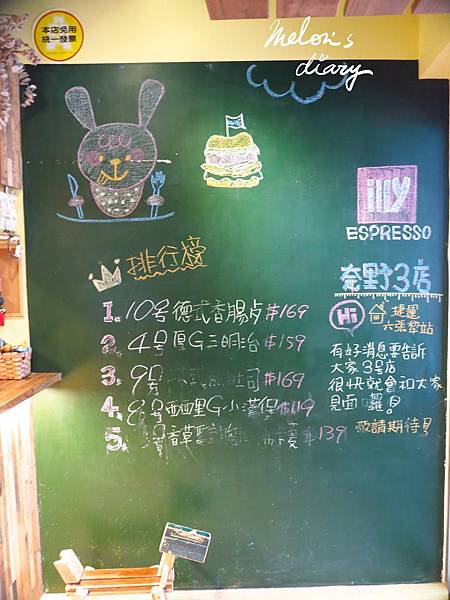 本店免用
統一發票
melon's
diary
illy
ESPRESSO
排行榜
1. 10号德式香腸 $169
2. 4号厚G三明治 $159
3. 9号 式 吐司 $169
4. 8号西西里G小漢保 $119
5. 香草 $139
奈野3店
Hi 捷運
六張犁站
有好消息要告訴
大家3号店
很快就會和大家
見面囉!
敬請期待!